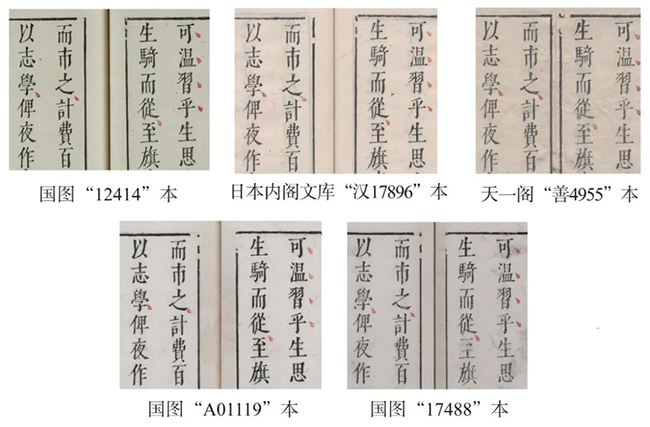 可温習乎生思
生騎而從至旗
而市之計費百
以志學俾夜作
国图“12414”本
可温習乎生思
生騎而從至旗
而市之計費百
以志學俾夜作
日本内阁文库“汉17896”本
可温習乎生思
生騎而從至旗
而市之計費百
以志學俾夜作
天一阁“善4955”本
可温習乎生思
生騎而從至旗
而市之計費百
以志學俾夜作
国图“A01119”本
可温習乎生思
生騎而從至旗
而市之計費百
以志學俾夜作
国图“17488”本